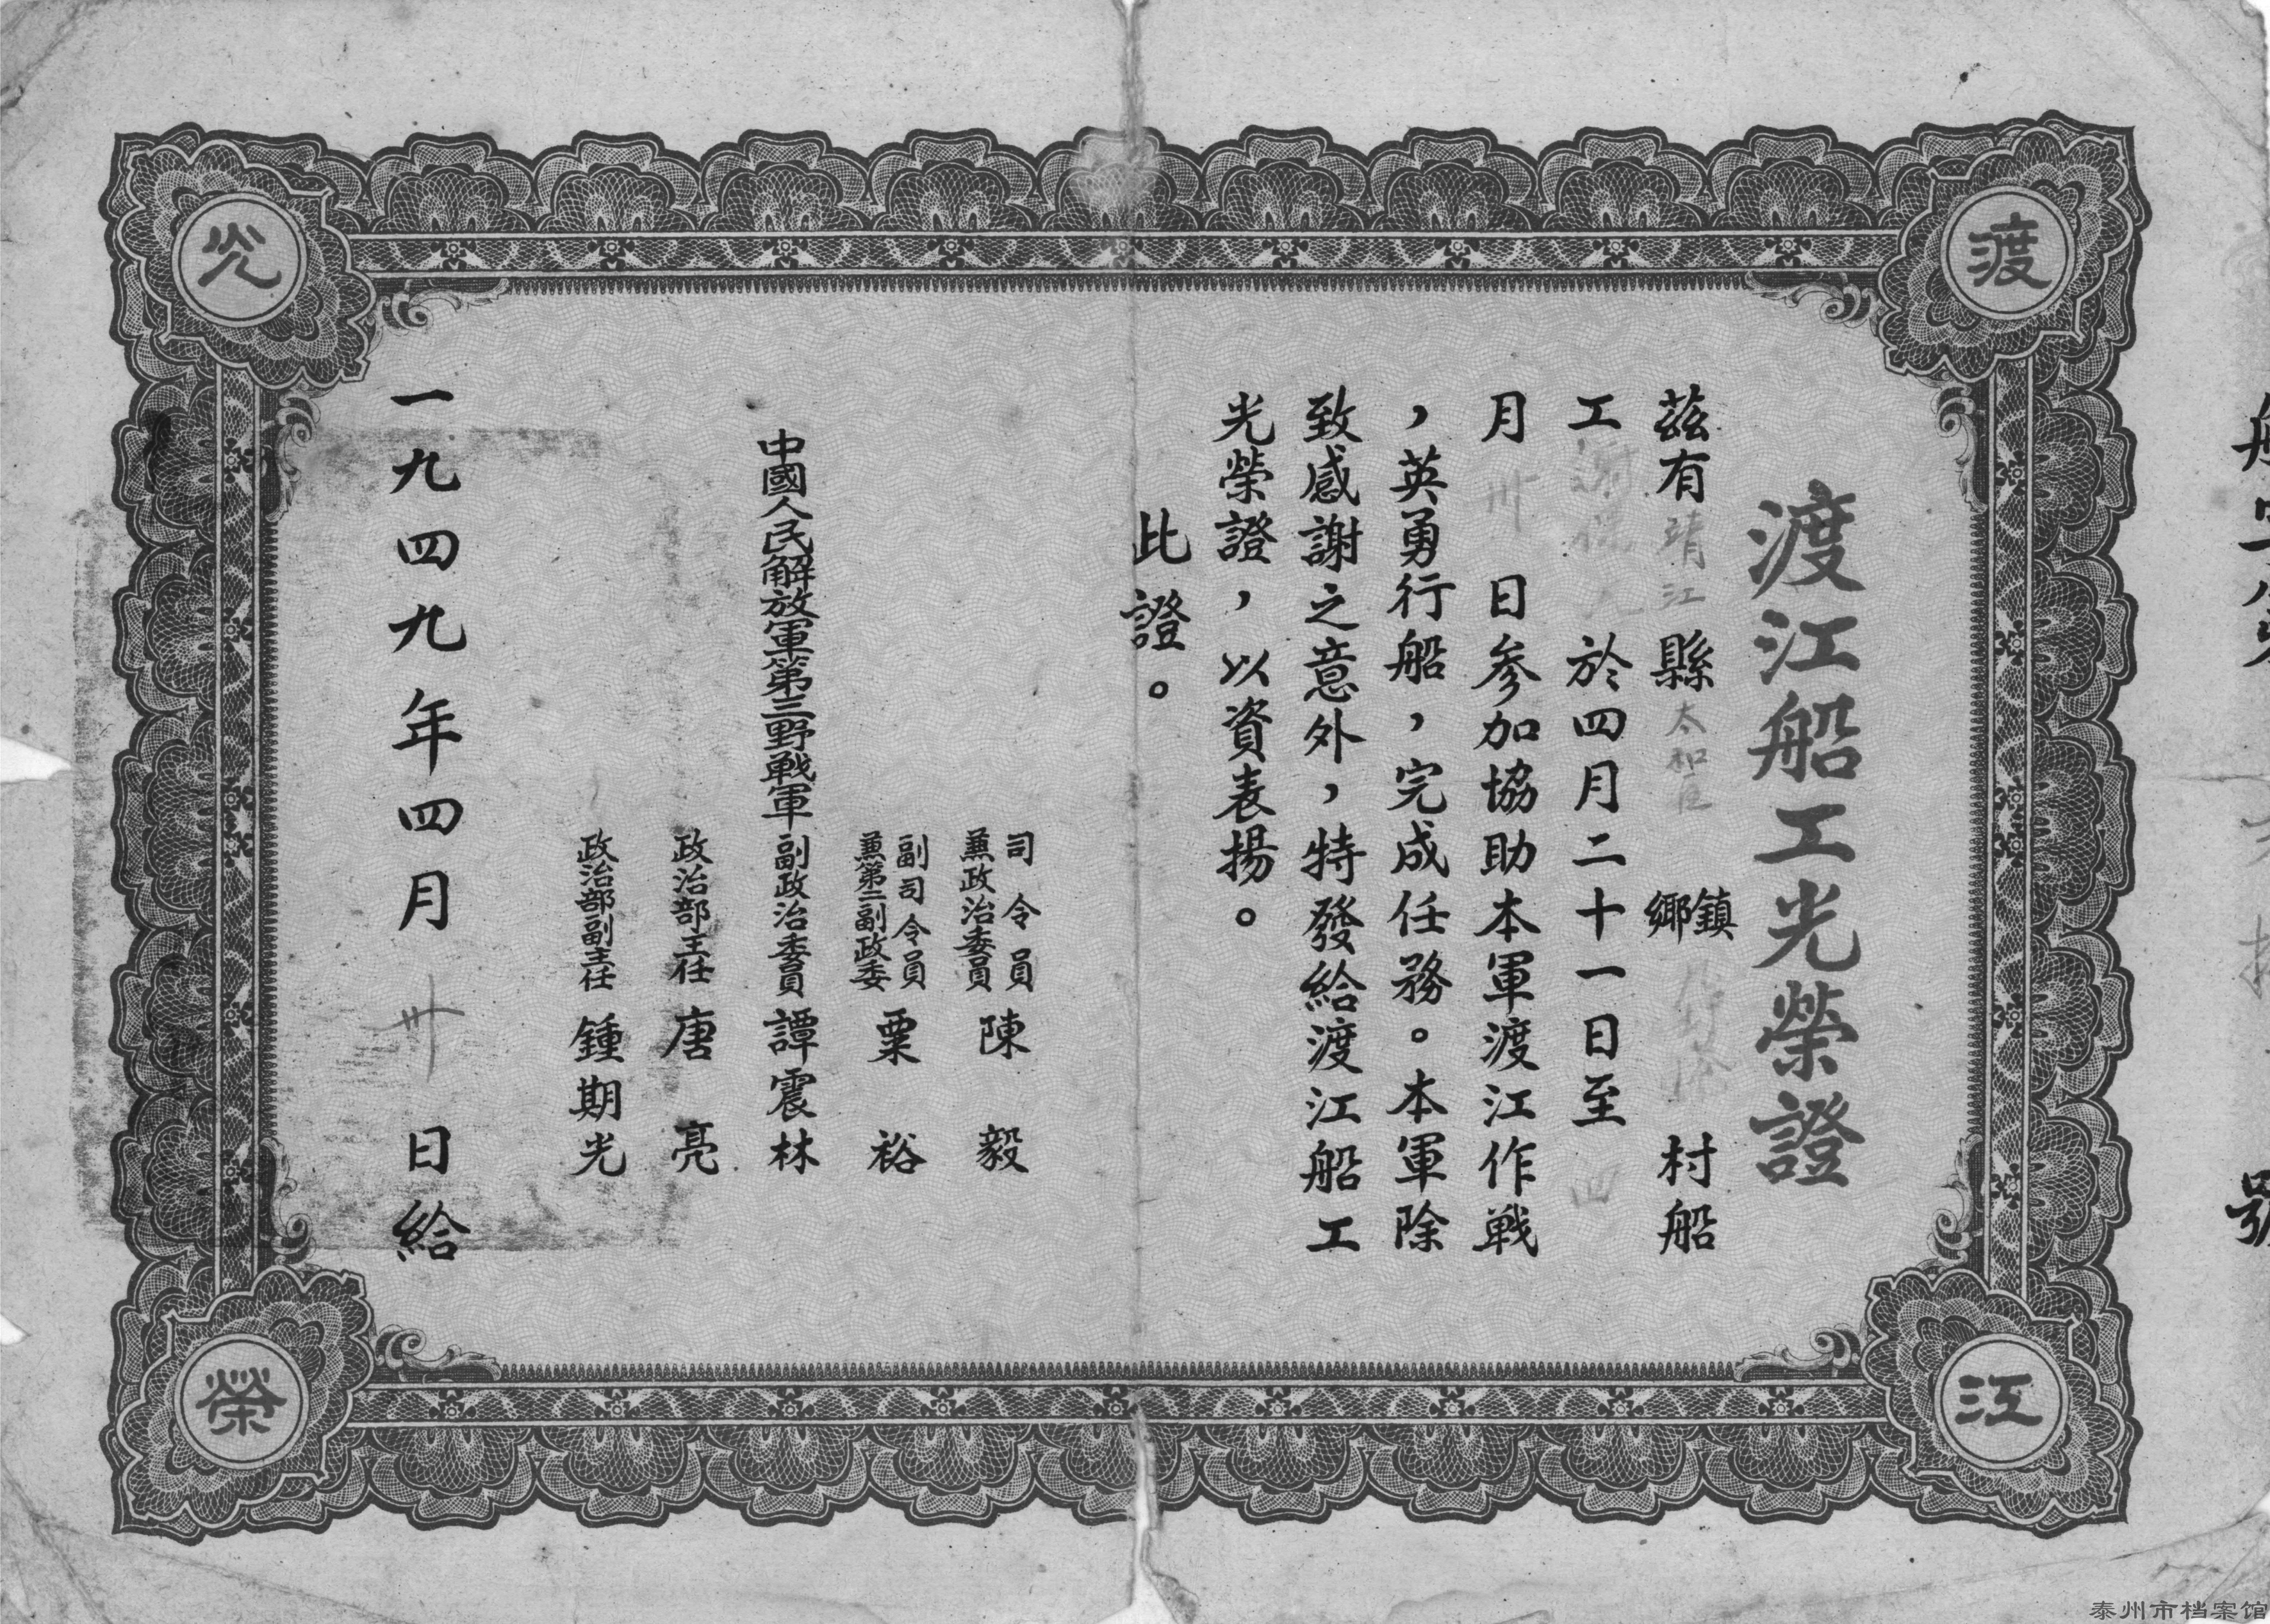 渡江光榮
渡江船工光榮證
茲有靖江縣太和區鎮鄉村船
工謝於四月二十一日至四
月卅日參加協助本軍渡江作戰
，英勇行船，完成任務。本軍除
致感謝之意外，特發給渡江船工
光榮證，以資表揚。
此證。
司令員
兼政治委員
陳毅
副司令員
兼第二副政委
粟裕
中國人民解放軍第三野戰軍副政治委員譚震林
政治部主任唐亮
政治部副主任鍾期光
一九四九年四月卅日給
號
泰州市档案馆